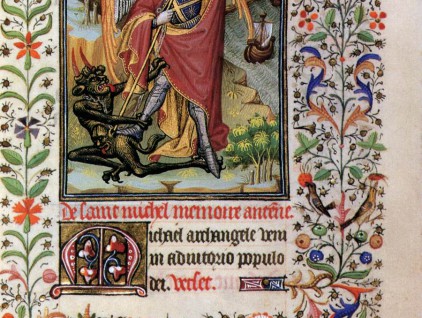 De saint michel memoire antenne.
Michael archangele veni
in adiutorio populo
dei. verset.